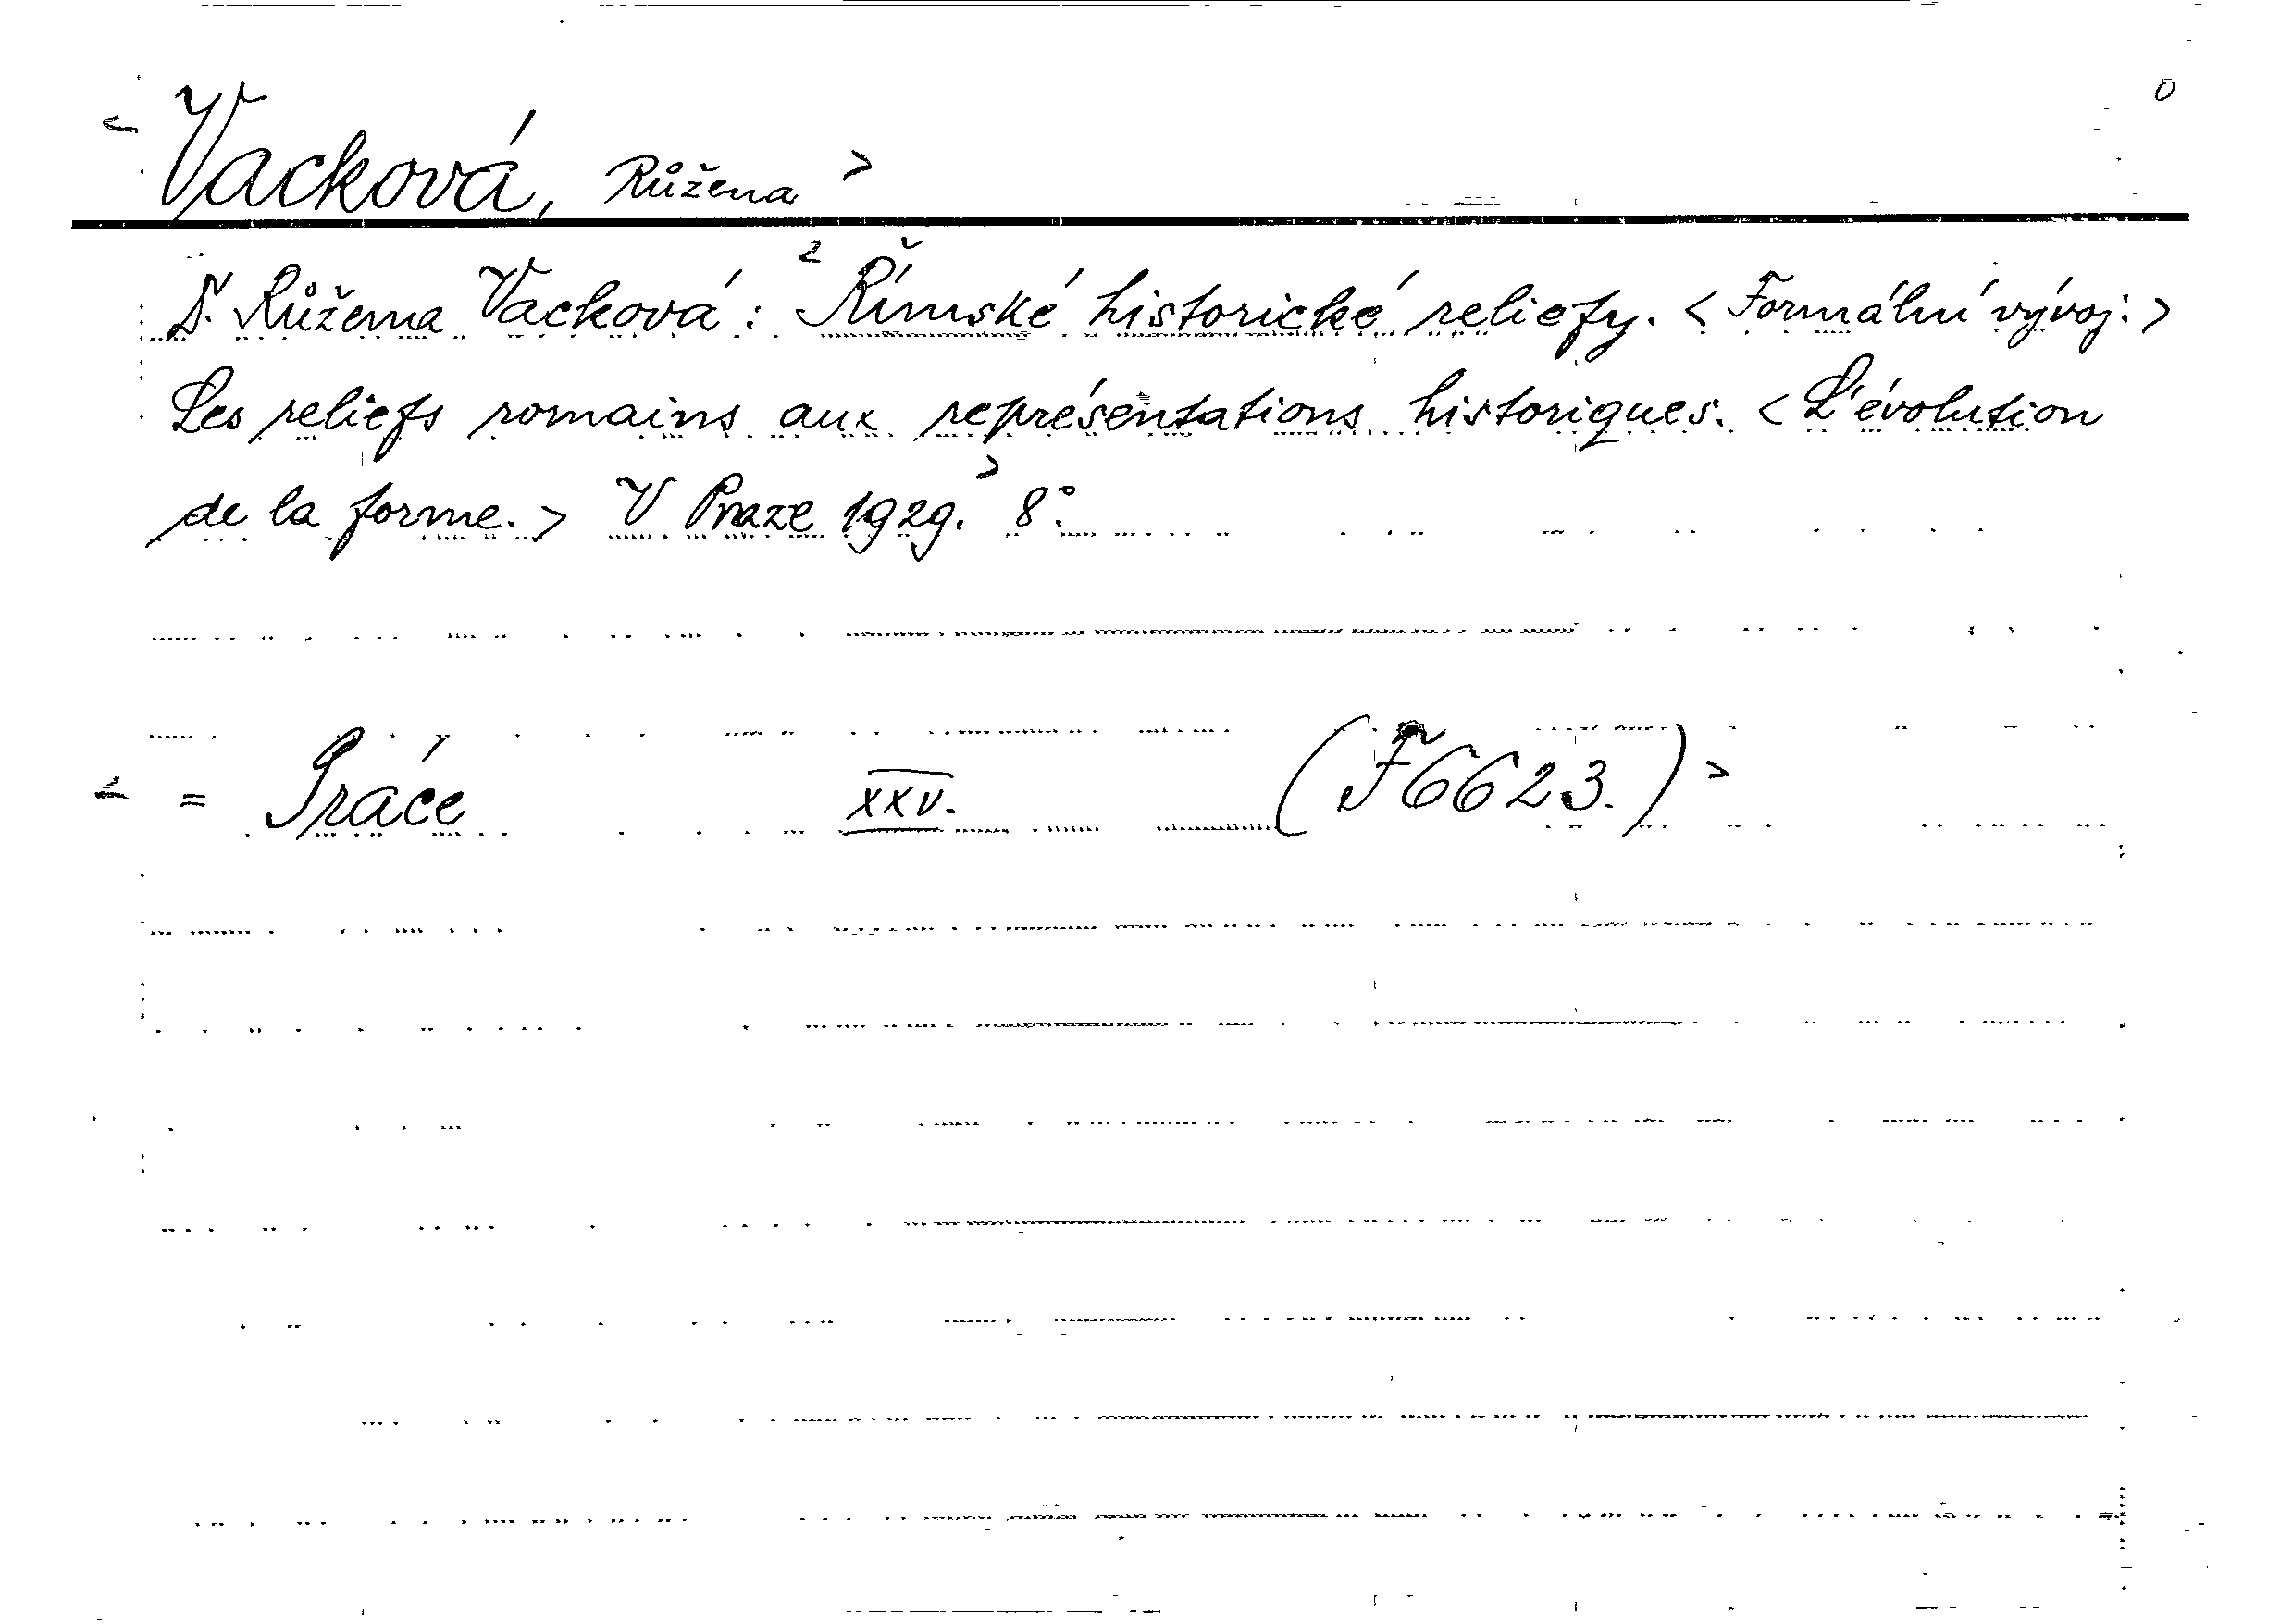 0
< Vacková, Růžena >
Dr. Růžena Vacková: < Římské historické reliefy. < Formální vývoj. >
Les reliefs romains aux représentations historiques. < L'évolution
de la forme. > V Praze 1929. > 8°.
< = Práce XXV. (F 6623.) >